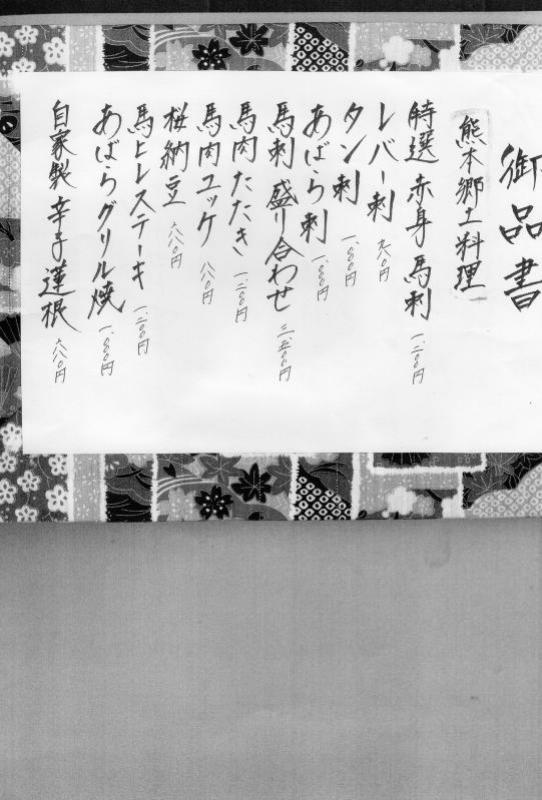 御品書
熊本郷土料理
特選 赤身 馬刺 一、二〇〇円
レバー刺 九八〇円
タン刺 一、〇〇〇円
あばら刺 一、〇〇〇円
馬刺 盛り合わせ 二、五〇〇円
馬肉 たたき 一、二〇〇円
馬肉ユッケ 八八〇円
桜納豆 六八〇円
馬ヒレステーキ 一、二〇〇円
あばらグリル焼 一、〇〇〇円
自家製 辛子蓮根 六八〇円